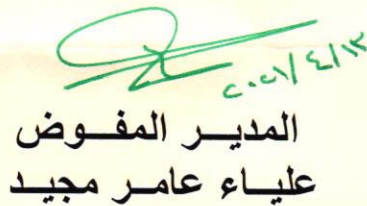 ٢٠٢١/٤/١٣
المدير المفوض
علياء عامر مجيد